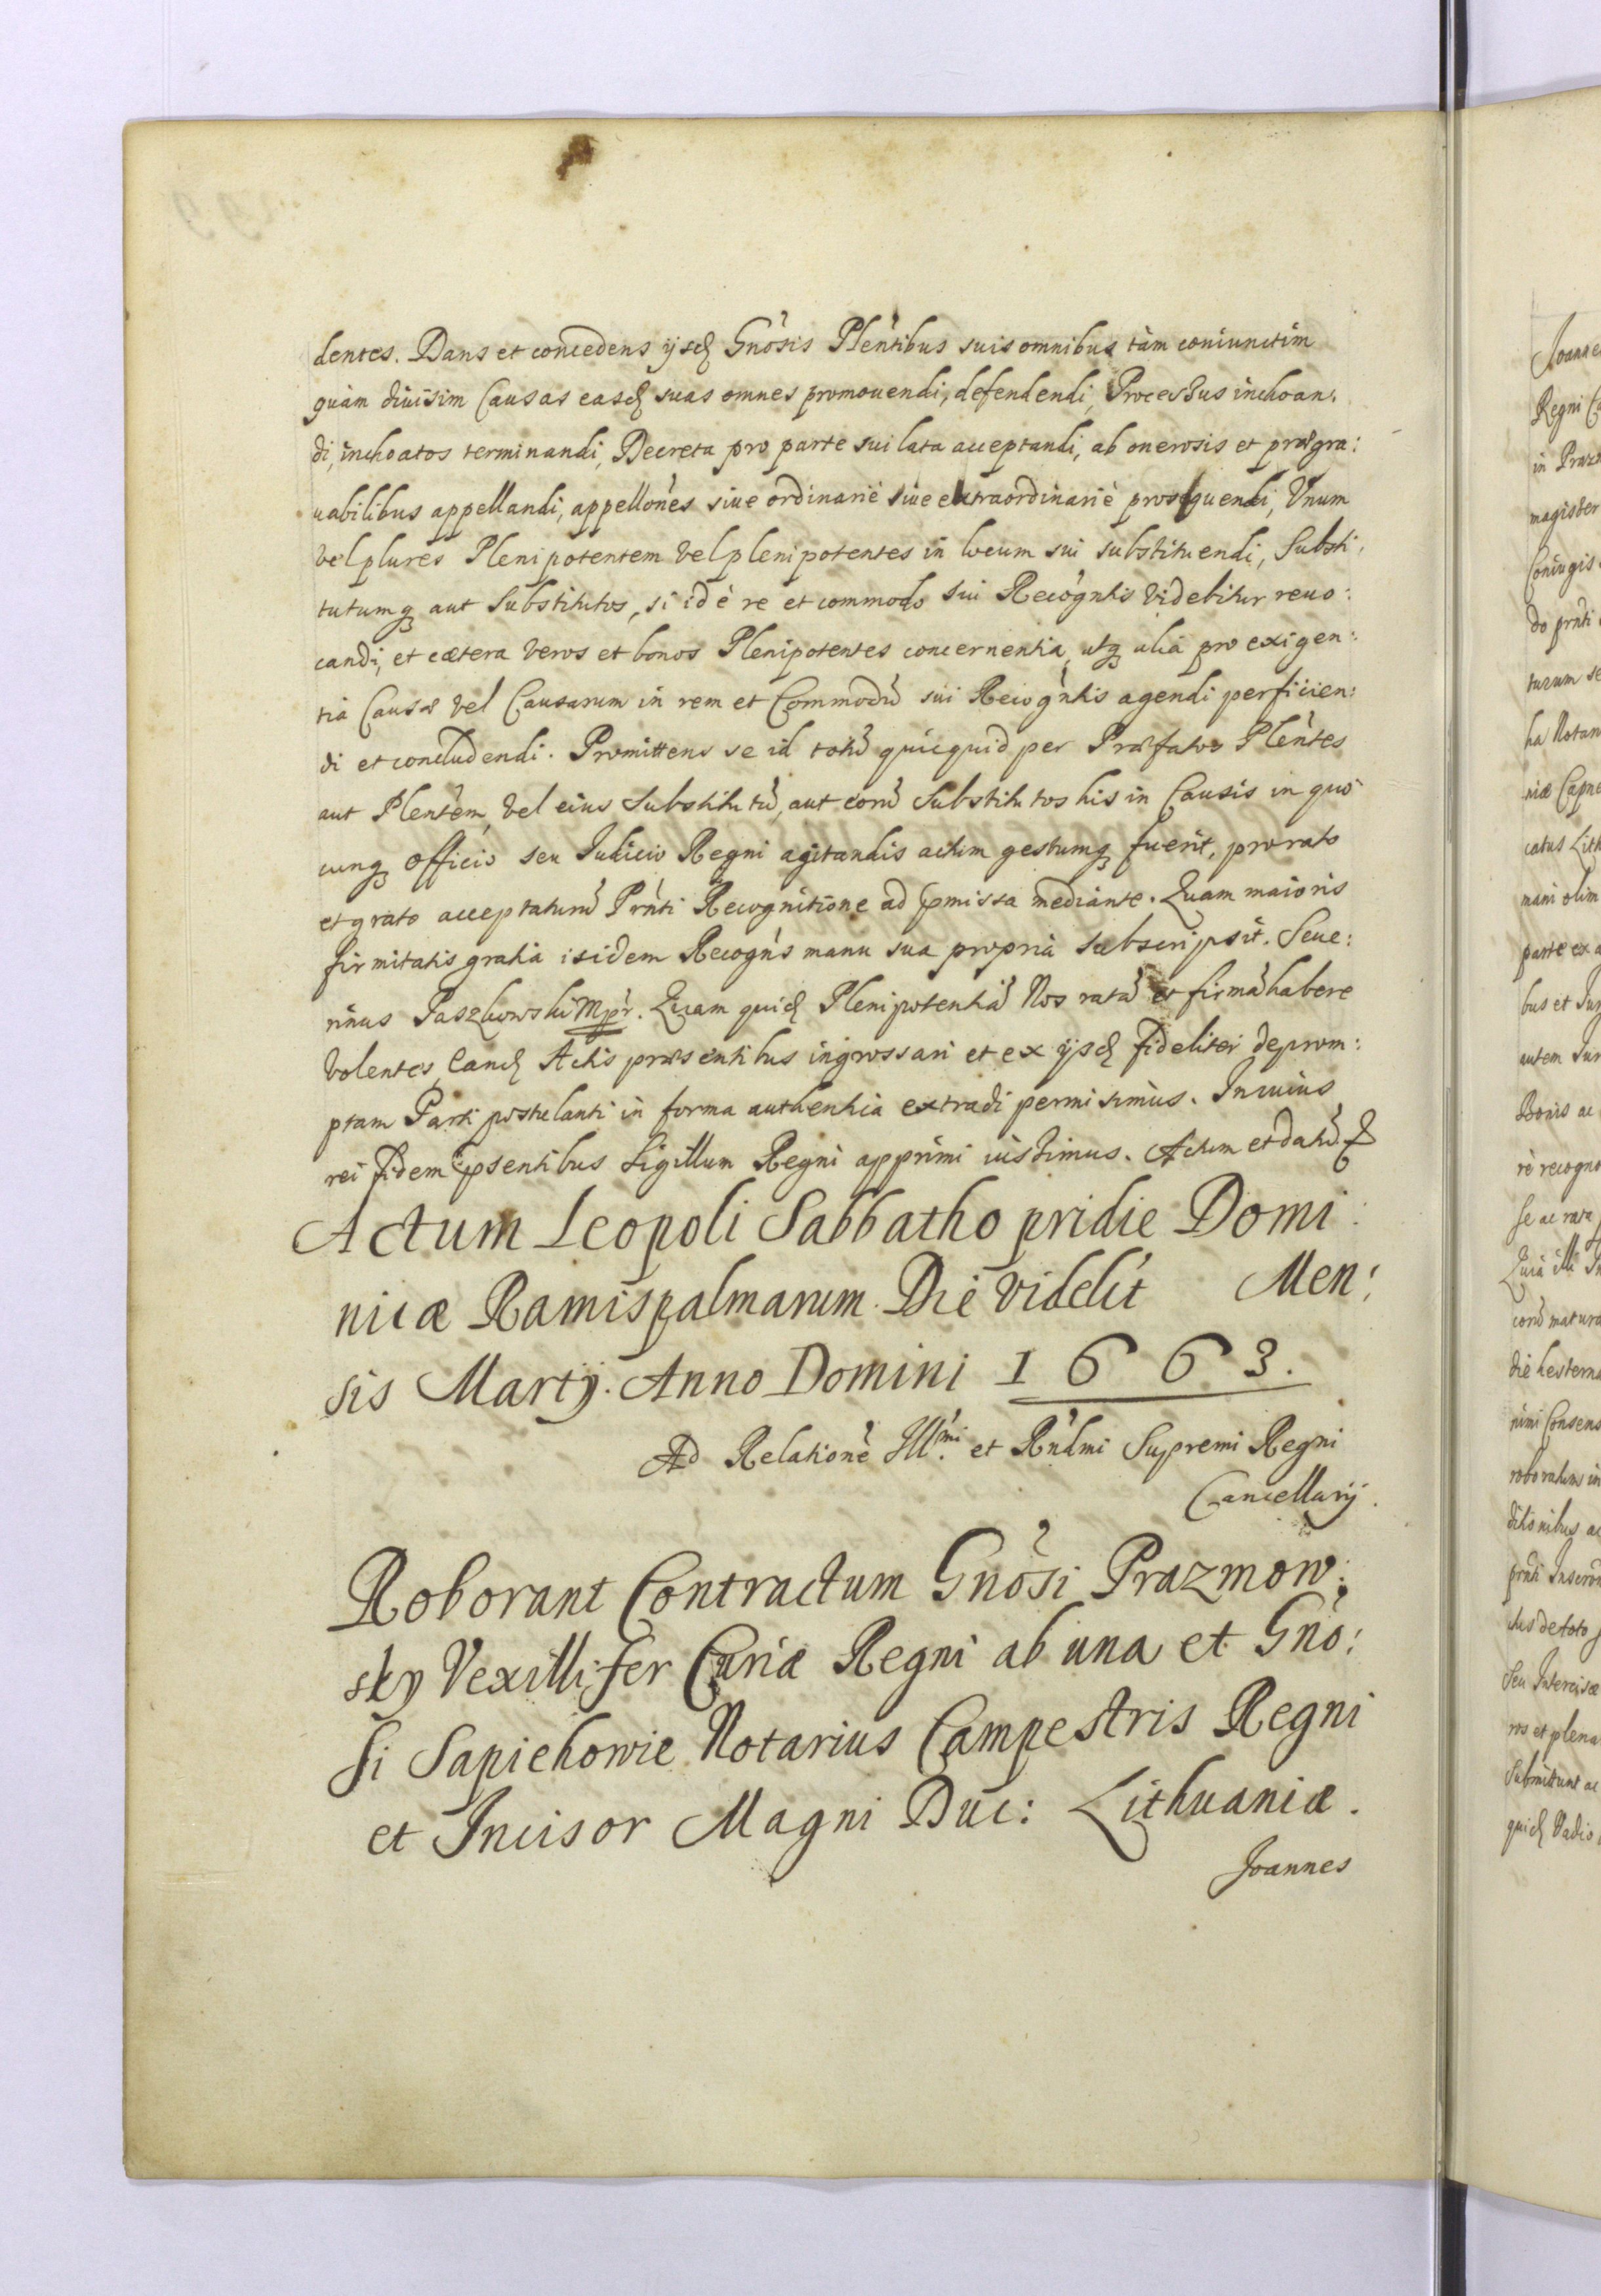 dentes. Dans et concedens ijsdē Gnosis Plentibus suis omnibus tàm coniunctim
quàm diuisim Causas easdē suas omnes promouendi, defendendi, Processus inchoan:
di, inchoatos terminandi, Decreta pro parte sui lata acceptandi, ab onerosis et prægra:
uabilibus appellandi, appellones siue ordinariè siue extraordinariè prosequendi, Vnum
vel plures Plenipotentem vel plenipotentes in locum sui substituendi, Substi:
tutumq aut Substitutos, si id è re et commodo sui Recogntis videbitur reuo:
candi, et cætera veros et bonos Plenipotentes concernentia, utq alia pro exigen:
tia Causæ vel Causarum in rem et Commodũ sui Recogntis agendi perficien:
di et concludendi. Promittens se id totũ quicquid per Præfatos Plentes
aut Plentem, vel eius Substitutũ, aut eorũ Substitutos his in Causis in quo
cunq officio seu Iudicio Regni agitandis actum gestumq fuerit, pro rato
et grato acceptaturũ Prnti Recognitione ad pmissa mediante. Quam maioris
firmitatis gratia isidem Recogns manu sua propria subscripsit. Seue:
rinus Paszkowski Mpr. Quam quidē Plenipotentiã Nos ratã et firmã habere
volentes, Eandē Actis præsentibus ingrossari et ex ijsdē fideliter deprom:
ptam Parti postulanti in forma authentica extradi permisimus. In cuius
rei fidem psentibus Sigillum Regni apprimi iussimus. Actum et datũ
Actum Leopoli Sabbatho pridie Domi:
nicæ Ramispalmarum. Die videlit Men:
sis Martij. Anno Domini 1663.
Ad Relationẽ Illmi. et Rndmi Supremi Regni
Cancellarij.
Roborant Contractum Gnosi Prazmow:
sky Vexillifer Curiæ Regni ab una et Gno:
si Sapiehowie Notarius Campestris Regni
et Incisor Magni Duc: Lithuaniæ.
Joannes